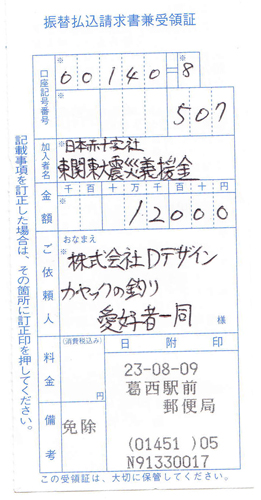 振替払込請求書兼受領証
口座記号番号
00140-8
507
加入者名
日本赤十字社
東関東大震災義援金
金額
千百十万千百十円
12000
ご依頼人
おなまえ
株式会社Dデザイン
カヤックの釣り
愛好者一同
様
料金
(消費税込み)
円
日附印
23-08-09
葛西駅前
郵便局
(01451 )05
N91330017
備考
免除
この受領証は、大切に保管してください。
記載事項を訂正した場合は、その箇所に訂正印を押してください。